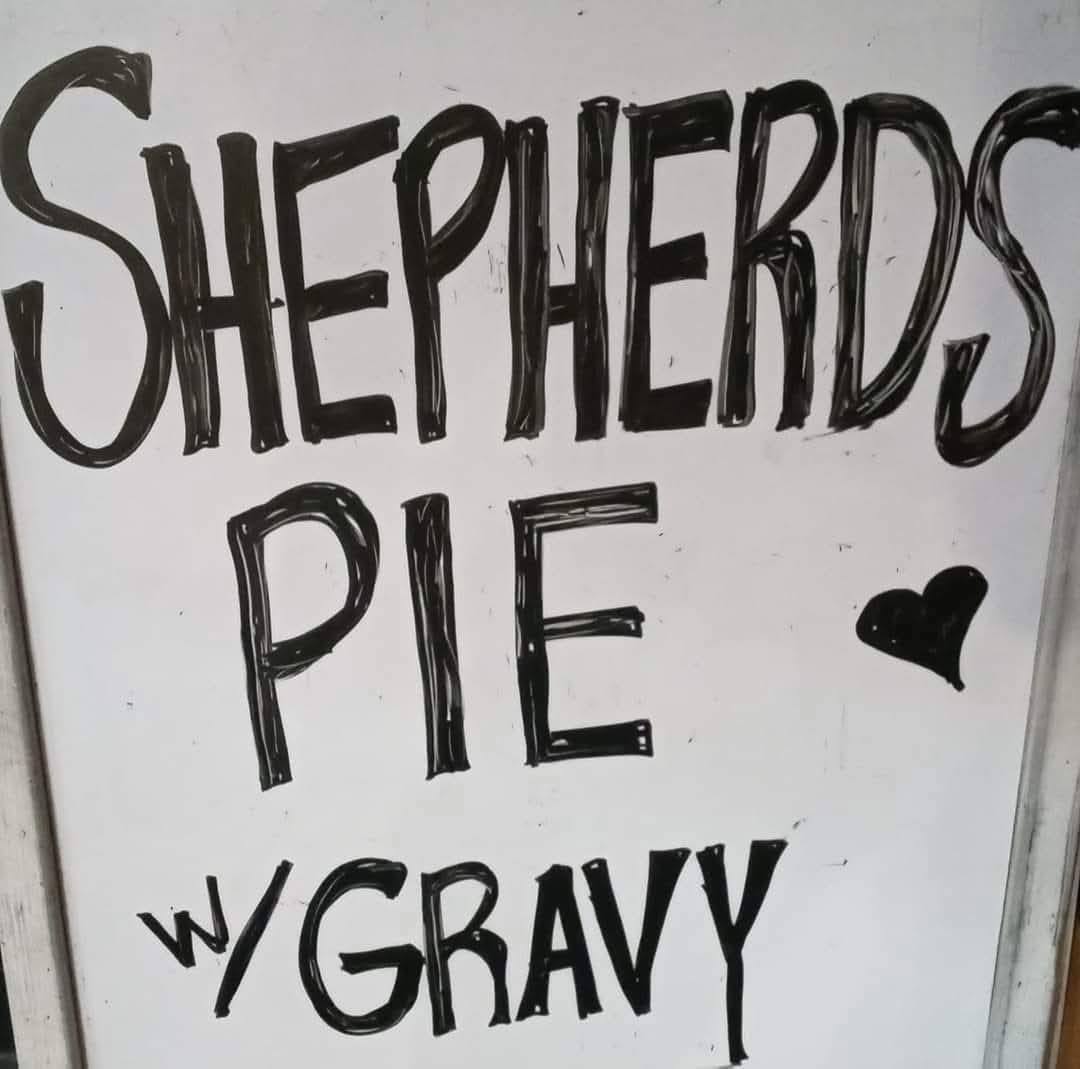 SHEPHERDS
PIE
W/GRAVY